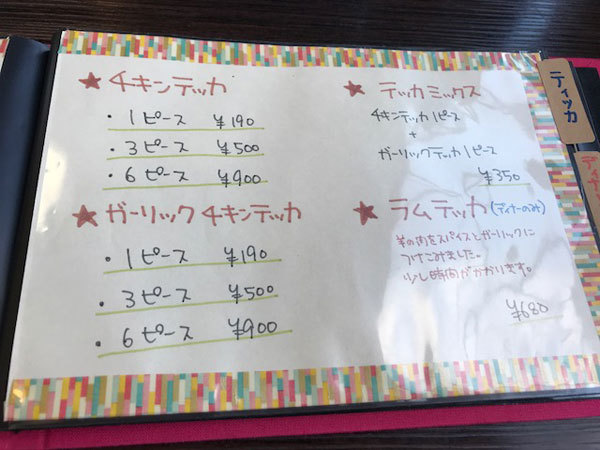 ★ チキンテッカ
・1ピース ¥190
・3ピース ¥500
・6ピース ¥900
★ ガーリックチキンテッカ
・1ピース ¥190
・3ピース ¥500
・6ピース ¥900
★ テッカミックス
チキンテッカ1ピース
+
ガーリックテッカ1ピース
¥350
★ ラムテッカ(ディナーのみ)
羊の肉をスパイスとガーリックに
つけこみました。
少し時間がかかります。
¥680
ティッカ